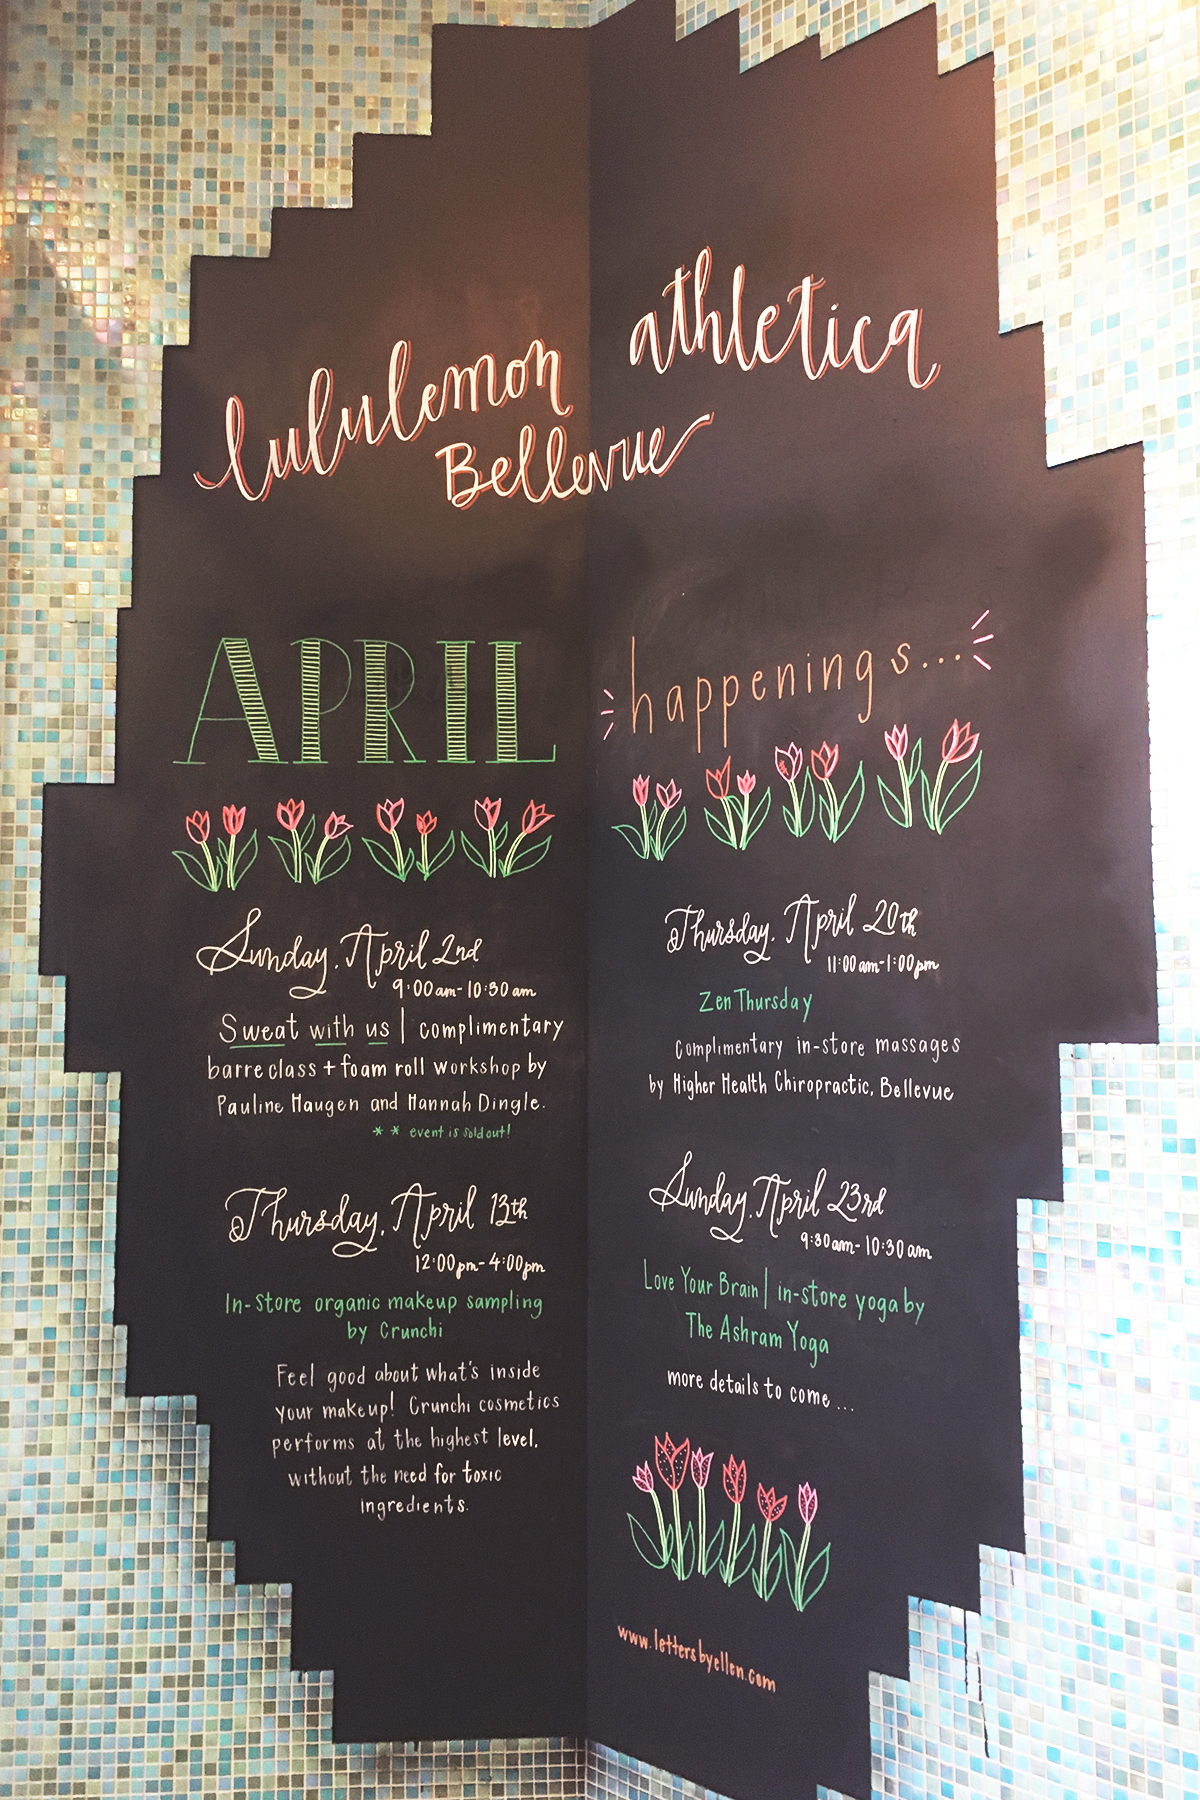 lululemon athletica
Bellevue
APRIL happenings...
Sunday, April 2nd
9:00am-10:30am
Sweat with us | complimentary
barre class + foam roll workshop by
Pauline Haugen and Hannah Dingle.
** event is sold out!
Thursday, April 13th
12:00pm-4:00pm
In-Store organic makeup sampling
by Crunchi
Feel good about what's inside
your makeup! Crunchi cosmetics
performs at the highest level,
without the need for toxic
ingredients.
Thursday, April 20th
11:00am-1:00pm
Zen Thursday
Complimentary in-store massages
by Higher Health Chiropractic, Bellevue
Sunday, April 23rd
9:30am-10:30am
Love Your Brain | in-store yoga by
The Ashram Yoga
more details to come...
www.lettersbyellen.com